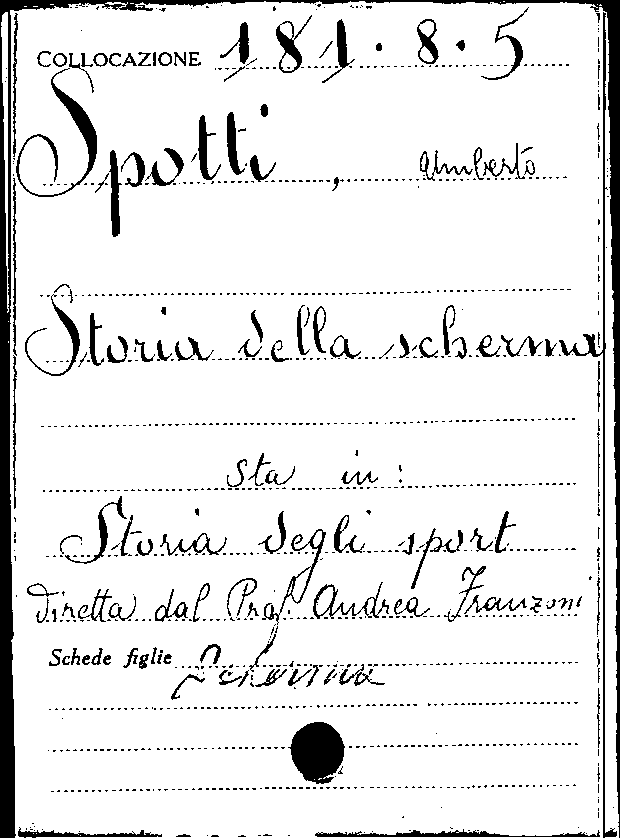 COLLOCAZIONE 181.8.5
Spotti, Umberto
Storia della scherma
sta in:
Storia degli sport
diretta dal Prof. Andrea Franzoni
Schede figlie Scherma